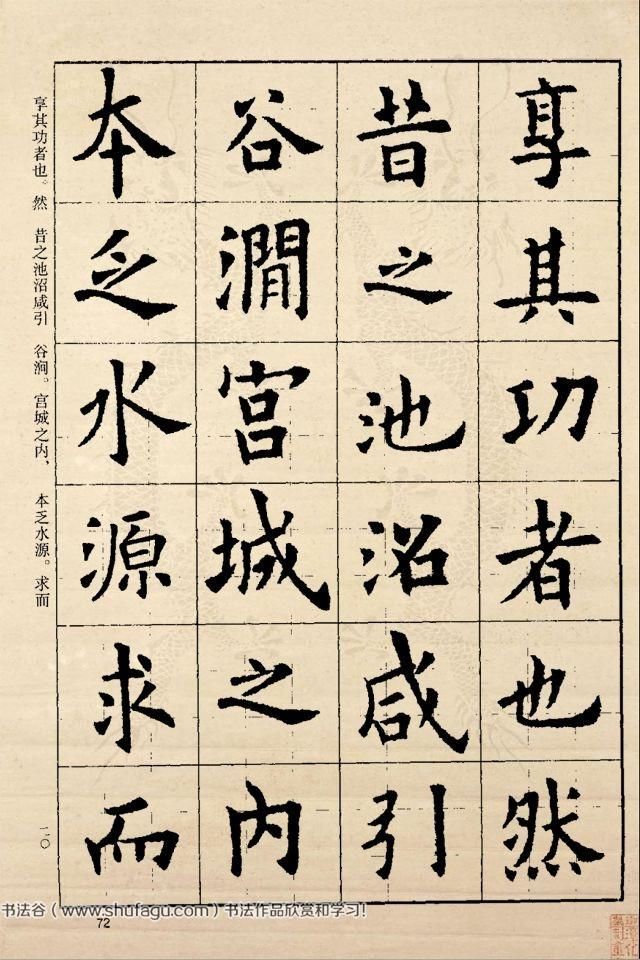 享其功者也然
昔之池沼咸引
谷澗宫城之内
本乏水源求而
享其功者也。然 昔之池沼咸引 谷涧。宫城之内， 本乏水源。求而
一〇
书法谷（www.shufagu.com）书法作品欣赏和学习！
72